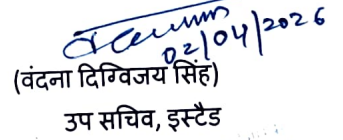 02/04/2026
(वंदना दिग्विजय सिंह)
उप सचिव, इस्टैड